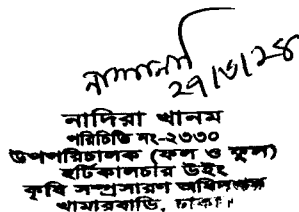 ২৭/৩/২৪
নাদিরা খানম
পরিচিতি নং-২৩৩০
উপপরিচালক (ফল ও ফুল)
হর্টিকালচার উইং
কৃষি সম্প্রসারণ অধিদপ্তর
খামারবাড়ি, ঢাকা।